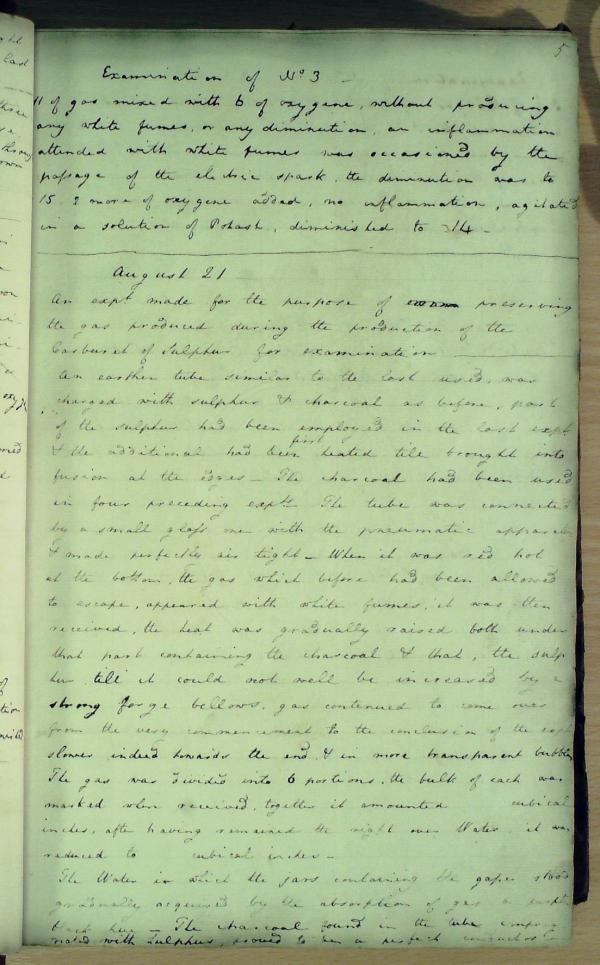 5
Examination of No 3 -
11 of gas mixed with 6 of oxygene, without producing
any white fumes, or any diminution, an inflammation
attended with white fumes was occasioned by the
passage of the electric spark, the diminution was to
15. 2 more of oxygene added, no inflammation, agitated
in a solution of Potash, diminished to 14 -
August 21
An expt made for the purpose of preserving
the gas produced during the production of the
Carburet of Sulphur for examination
An earthen tube similar to the last used, was
charged with sulphur & charcoal as before, part
of the sulphur had been employed in the last expt
& the additional had been first heated till brought into
fusion at the edges - The charcoal had been used
in four preceding expts The tube was connected
by a small glass one with the pneumatic apparatus
& made perfectly air tight - When it was red hot
at the bottom, the gas which before had been allowed
to escape, appeared with white fumes, it was then
received, the heat was gradually raised both under
that part containing the charcoal & that, the sulp
hur till it could not well be increased by a
strong forge bellows, gas continued to come over
from the very commencement to the conclusion of the expt
slower indeed towards the end, & in more transparent bubbles
The gas was divided into 6 portions, the bulk of each was
marked when received, together it amounted cubical
inches, after having remained the night over Water it was
reduced to cubical inches -
The Water in which the jars containing the gases stood
gradually acquired by the absorption of gas a
hue - The charcoal found in the tube impreg
nated with Sulphur, proved to be a perfect conductor